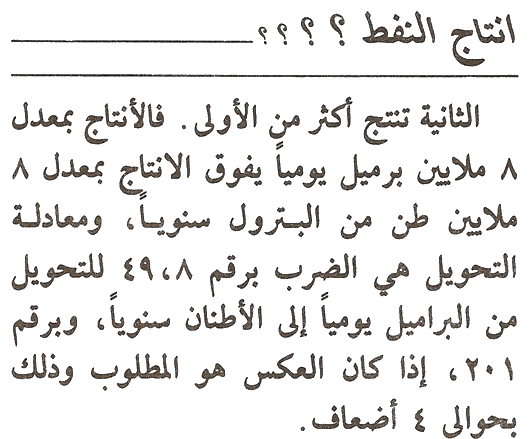 انتاج النفط ؟ ؟ ؟ ؟
الثانية تنتج أكثر من الأولى. فالأنتاج بمعدل
٨ ملايين برميل يومياً يفوق الانتاج بمعدل ٨
ملايين طن من البـترول سنويـاً، ومعادلـة
التحويل هي الضرب برقم ٤٩،٨ للتحويل
من البراميل يومياً إلى الأطنان سنوياً، وبرقم
٢٠١، إذا كان العكس هو المطلوب وذلك
بحوالى ٤ أضعاف.